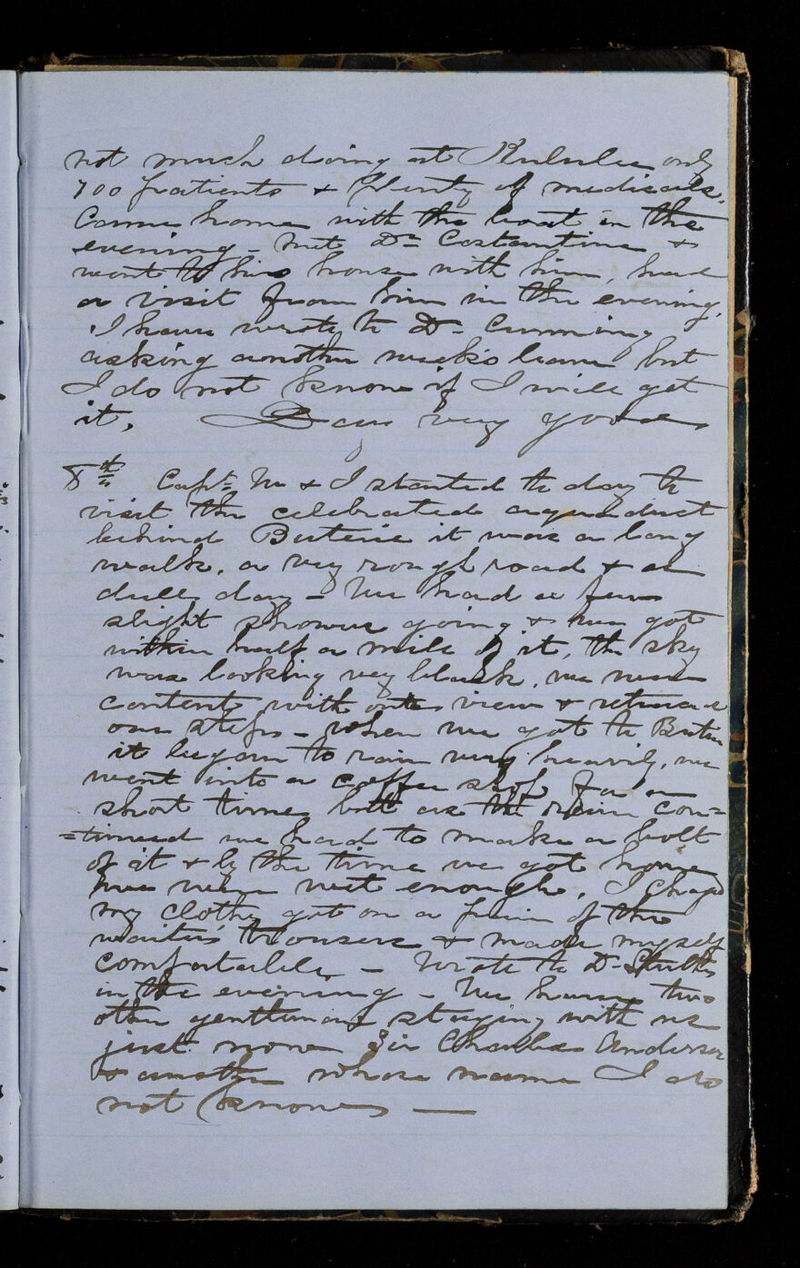 not much doing at Kululee only
700 patients & plenty of medicals.
Came home with the boat in the
evening - met Dr Costantine &
went to his house with him, had
a visit from him in the evening.
I have wrote to Dr Cumming
asking another week's leave but
I do not know if I will get
it, Day very good
8th Capt. M & I started to day to
visit the celebrated aqueduct
behind it was a long
walk, a very rough road & a
dull day - We had a few
slight showers going & we got
within half a mile of it, the sky
was looking very black, we were
content with our view & retraced
our steps - when we got to
it began to rain very heavily, we
went into a coffee shop for a
short time but as the rain con=
=tinued we had to make a bolt
of it & by the time we got home
we were wet enough, I changd
my clothes got on a pair of the
waiter's trousers & made myself
comfortable - Wrote to Dr
in the evening - We have two
other gentlemen staying with us
just now Sir Charles Anderson
& another whose name I do
not know -